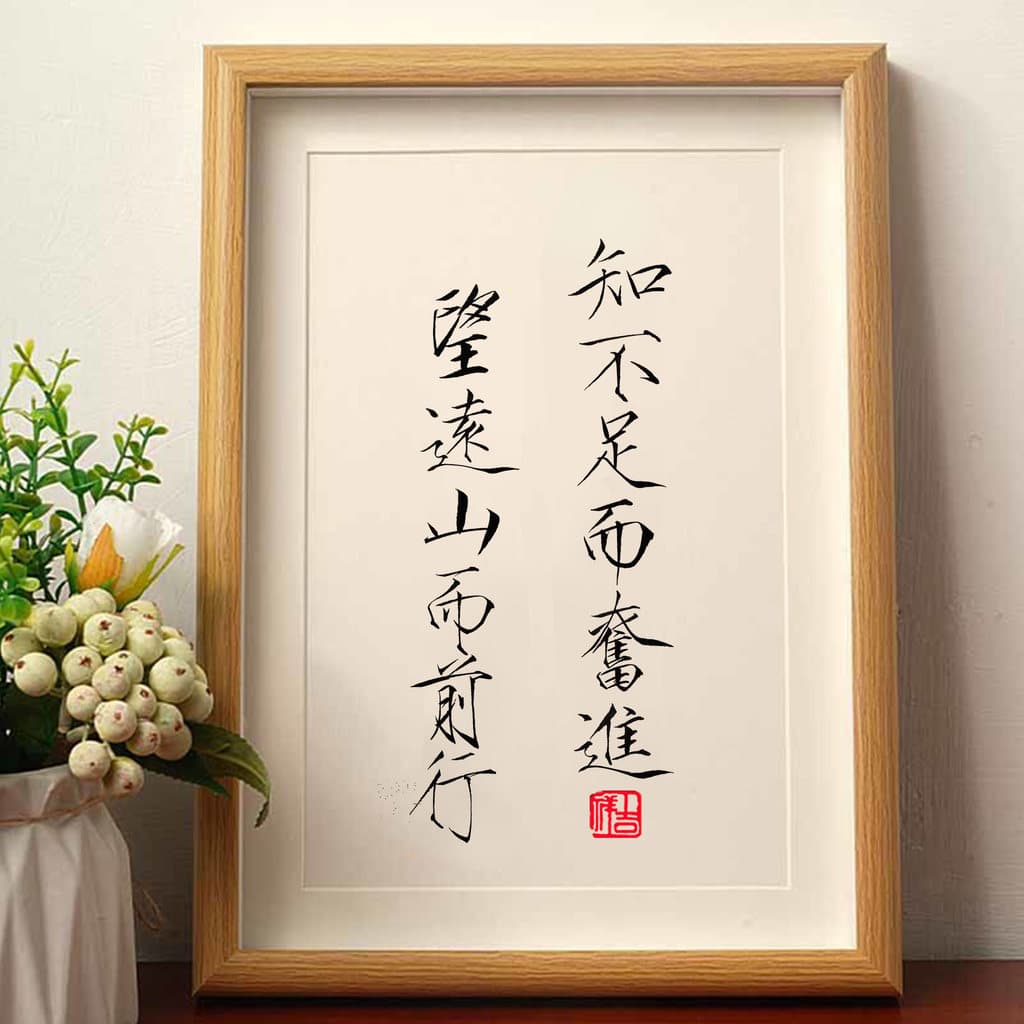 知不足而奮進
望遠山而前行
吉祥